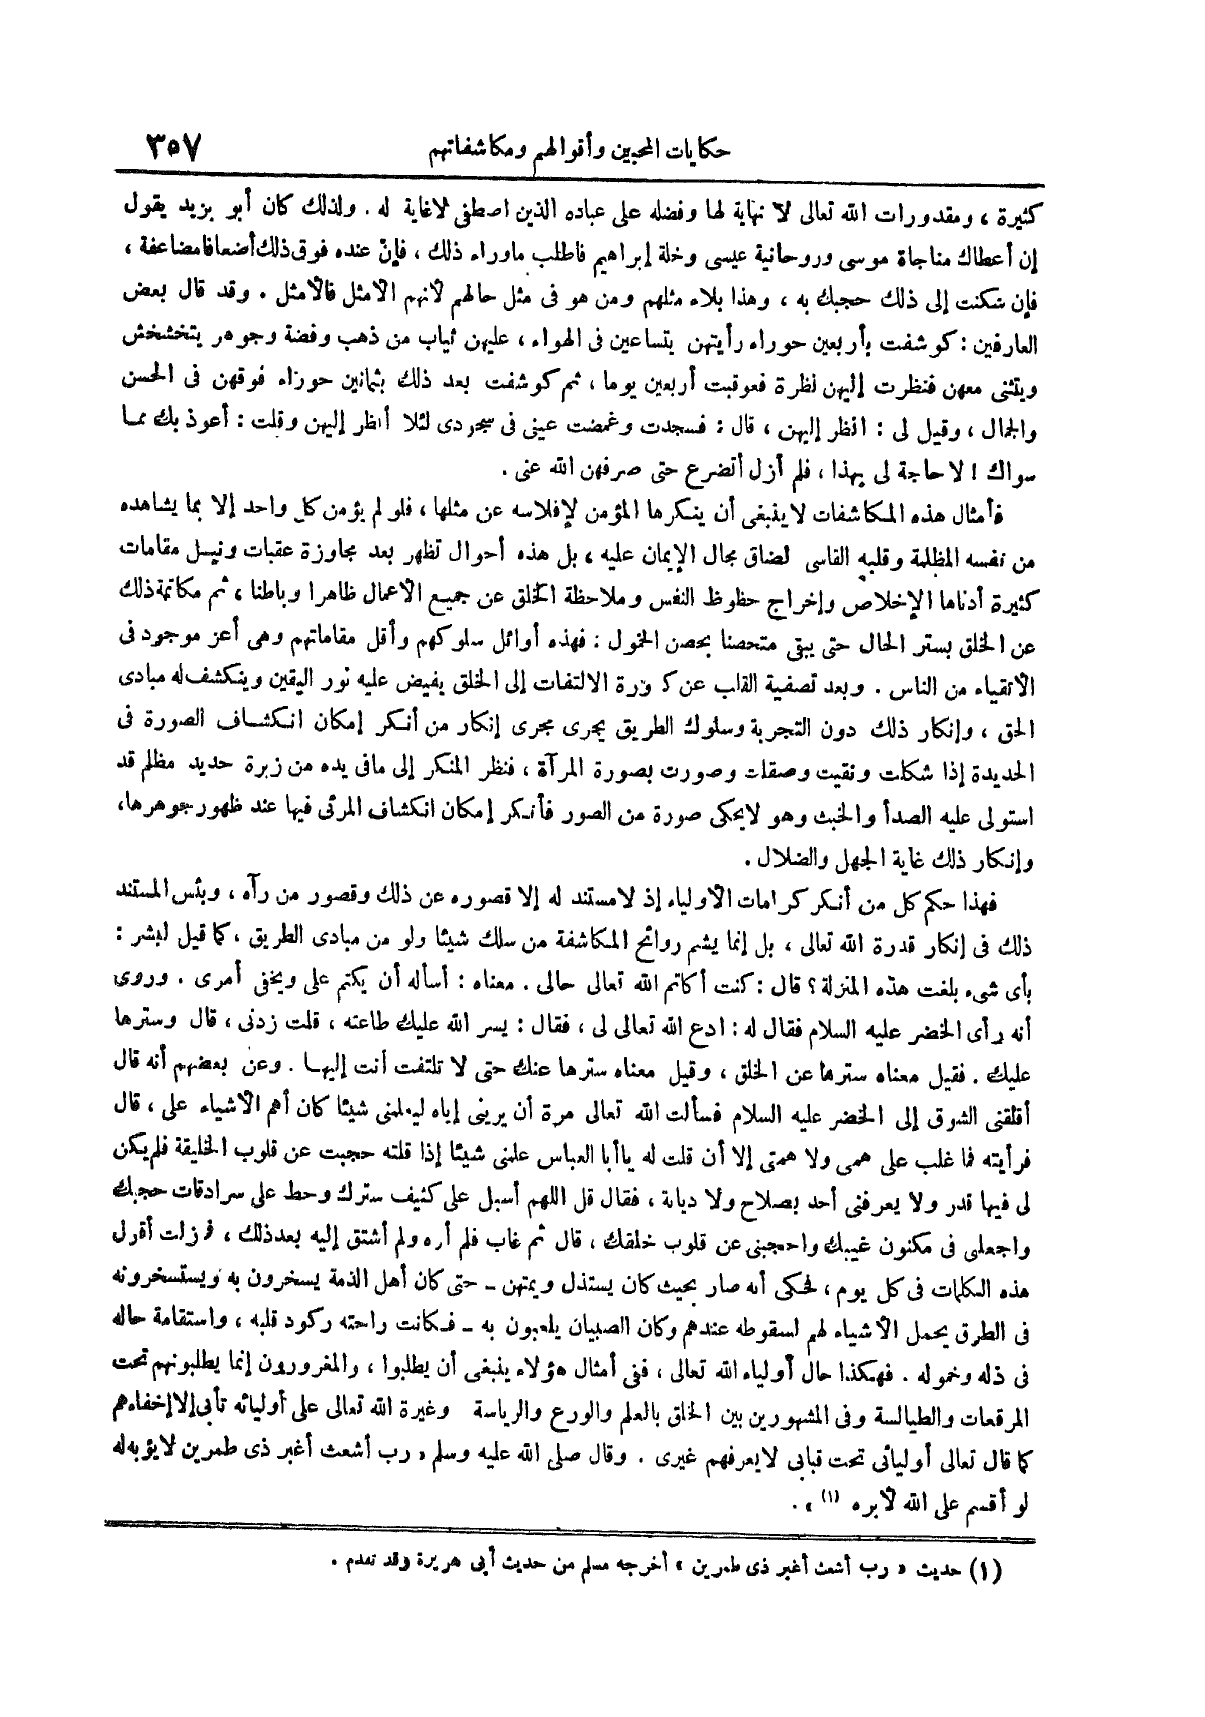 حكايات المحبين وأقوالهم ومكاشفاتهم ٣٥٧
كثيرة ، ومقدورات الله تعالى لا نهاية لها وفضله على عباده الذين اصطفى لاغاية له . ولذلك كان أبو يزيد يقول
إن أعطاك مناجاة موسى وروحانية عيسى وخلة إبراهيم فاطلب ماوراء ذلك ، فإنّ عنده فوق ذلك أضعافا مضاعفة ،
فإن سكنت إلى ذلك حجبك به ، وهذا بلاء مثلهم ومن هو فى مثل حالهم لأنهم الأمثل فالأمثل . وقد قال بعض
العارفين : كوشفت بأربعين حوراء رأيتهن يتساعين فى الهواء ، عليهن ثياب من ذهب وفضة وجوهر يتخشخش
ويتثنى معهن فنظرت إليهن نظرة فعوقبت أربعين يوما ، ثم كوشفت بعد ذلك بثمانين حوراء فوقهن فى الحسن
والجمال ، وقيل لى : انظر إليهن ، قال : فسجدت وغمضت عينى فى سجودى لئلا أنظر إليهن وقلت : أعوذ بك مما
سواك ! لاحاجة لى بهذا ، فلم أزل أتضرع حتى صرفهن الله عنى .
فأمثال هذه المكاشفات لاينبغى أن ينكرها المؤمن لإفلاسه عن مثلها ، فلو لم يؤمن كل واحد إلا بما يشاهده
من نفسه المظلمة وقلبه القاسى لضاق مجال الإيمان عليه ، بل هذه أحوال تظهر بعد مجاوزة عقبات ونيل مقامات
كثيرة أدناها الإخلاص وإخراج حظوظ النفس وملاحظة الخلق عن جميع الأعمال ظاهرا وباطنا ، ثم مكاتمة ذلك
عن الخلق بستر الحال حتى يبقى متحصنا بحصن الخمول : فهذه أوائل سلوكهم وأقل مقاماتهم وهى أعز موجود فى
الأتقياء من الناس . وبعد تصفية القلب عن كدورة الالتفات إلى الخلق يفيض عليه نور اليقين وينكشف له مبادى
الحق ، وإنكار ذلك دون التجربة وسلوك الطريق يجرى مجرى إنكار من أنكر إمكان انكشاف الصورة فى
الحديدة إذا شكلت ونقيت وصقلت وصورت بصورة المرآة ، فنظر المنكر إلى مافى يده من زبرة حديد مظلم قد
استولى عليه الصدأ والخبث وهو لايحكى صورة من الصور فأنكر إمكان انكشاف المرئى فيها عند ظهور جوهرها ،
وإنكار ذلك غاية الجهل والضلال .
فهذا حكم كل من أنكر كرامات الأولياء إذ لامستند له إلا قصوره عن ذلك وقصور من رآه ، وبئس المستند
ذلك فى إنكار قدرة الله تعالى ، بل إنما يشم روائح المكاشفة من سلك شيئا ولو من مبادى الطريق ، كما قيل لبشر :
بأى شىء بلغت هذه المنزلة ؟ قال : كنت أكاتم الله تعالى حالى . معناه : أسأله أن يكتم على ويخفى أمرى . وروى
أنه رأى الخضر عليه السلام فقال له : ادع الله تعالى لى ، فقال : يسر الله عليك طاعته ، قلت زدنى ، قال وسترها
عليك . فقيل معناه سترها عن الخلق ، وقيل معناه سترها عنك حتى لا تلتفت أنت إليها . وعن بعضهم أنه قال
أقلقنى الشوق إلى الخضر عليه السلام فسألت الله تعالى مرة أن يرينى إياه ليعلمنى شيئا كان أهم الأشياء على ، قال
فرأيته فما غلب على همى ولا همتى إلا أن قلت له ياأبا العباس علمنى شيئا إذا قلته حجبت عن قلوب الخليقة فلم يكن
لى فيها قدر ولا يعرفنى أحد بصلاح ولا ديانة ، فقال قل اللهم أسبل على كثيف سترك وحط على سرادقات حجبك
واجعلى فى مكنون غيبك واحجبنى عن قلوب خلقك ، قال ثم غاب فلم أره ولم أشتق إليه بعد ذلك ، فما زلت أقول
هذه الكلمات فى كل يوم ، فحكى أنه صار بحيث كان يستذل ويمتهن – حتى كان أهل الذمة يسخرون به ويستسخرونه
فى الطرق يحمل الأشياء لهم لسقوطه عندهم وكان الصبيان يلعبون به – فكانت راحته ركود قلبه ، واستقامة حاله
فى ذله وخموله . فهكذا حال أولياء الله تعالى ، ففى أمثال هؤلاء ينبغى أن يطلبوا ، والمغرورون إنما يطلبونهم تحت
المرقعات والطيالسة وفى المشهورين بين الخلق بالعلم والورع والرياسة وغيرة الله تعالى على أوليائه تأبى إلا إخفاءهم
كما قال تعالى أوليائى تحت قبابى لايعرفهم غيرى . وقال صلى الله عليه وسلم « رب أشعث أغبر ذى طمرين لايؤبه له
لو أقسم على الله لأبره (١) » .
(١) حديث « رب أشعث أغبر ذى طمرين » أخرجه مسلم من حديث أبى هريرة وقد تقدم .